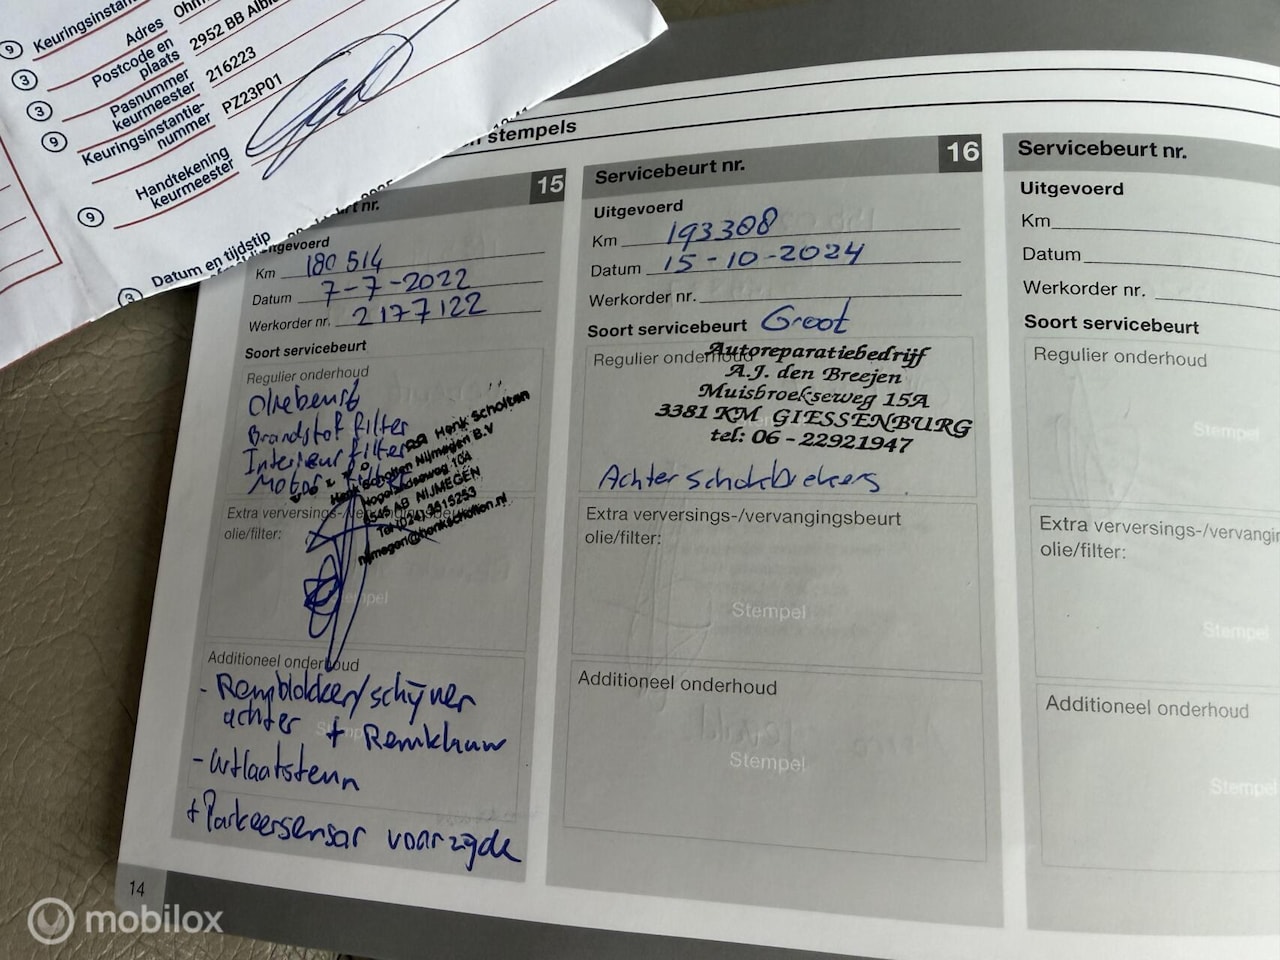 Keuringsinstan
Adres Ohm
Postcode en
plaats 2952 BB Albla
Pasnummer
keurmeester 216223
Keuringsinstantie-
nummer PZ23P01
Handtekening
keurmeester
Datum en tijdstip
9
3
3
9
9
3
n stempels
urt nr. 15
itgevoerd
Km 180 514
Datum 7-7-2022
Werkorder nr. 2177122
Soort servicebeurt
Regulier onderhoud
Oliebeurt
Brandstof filter
Interieurfilter
Motor
Henk Scholten
Henk Scholten Nijmegen B.V
Hogelandseweg 104
6545 AB NIJMEGEN
Tel (024) 3815253
nijmegen@henkscholten.nl
Extra verversings-/vervangingsbeurt
olie/filter:
Stempel
Additioneel onderhoud
- Remblokken/schijven
achter + Remklauw
- Uitlaatsteun
+ Parkeersensor voorzijde
14
Servicebeurt nr. 16
Uitgevoerd
Km 193308
Datum 15-10-2024
Werkorder nr.
Soort servicebeurt Groot
Regulier onderhoud
Autoreparatiebedrijf
A.J. den Breejen
Muisbroekseweg 15A
3381 KM GIESSENBURG
tel: 06 - 22921947
Achter schokbrekers
Extra verversings-/vervangingsbeurt
olie/filter:
Stempel
Additioneel onderhoud
Stempel
Servicebeurt nr.
Uitgevoerd
Km
Datum
Werkorder nr.
Soort servicebeurt
Regulier onderhoud
Stempel
Extra verversings-/vervangin
olie/filter:
Stempel
Additioneel onderhoud
Stempel
mobilox